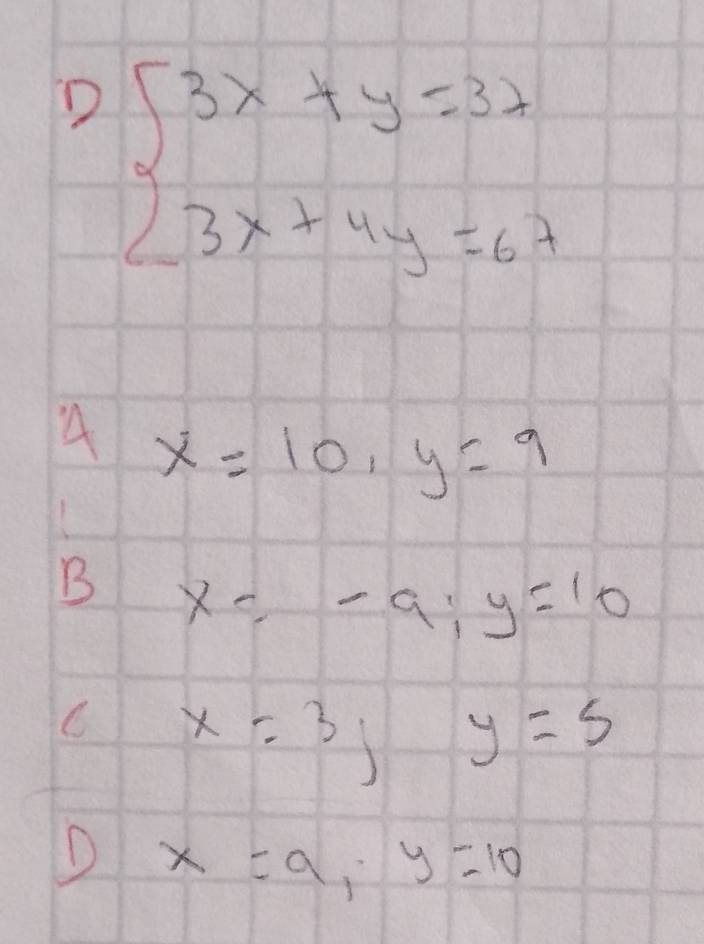 D { 3x + y = 37
3x + 4y = 67
A x = 10, y = 9
B x = -9; y = 10
C x = 3; y = 5
D x = 9; y = 10